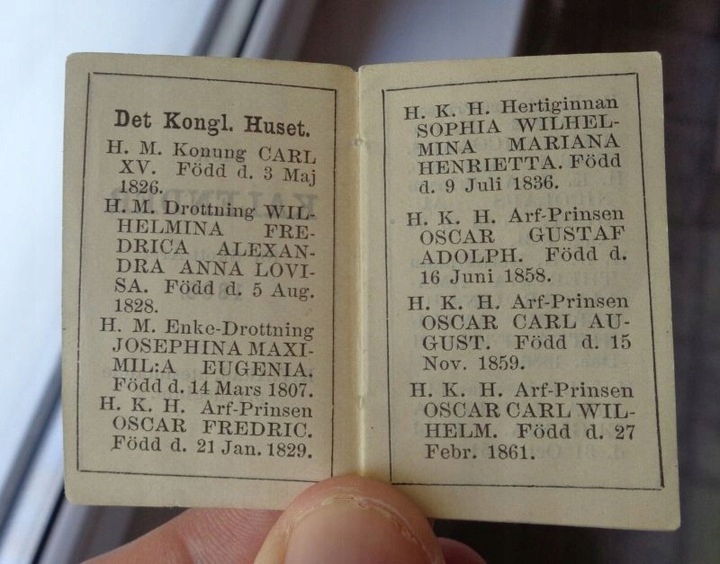 Det Kongl. Huset.
H. M. Konung CARL
XV. Född d. 3 Maj
1826.
H. M. Drottning WIL-
HELMINA FRE-
DRICA ALEXAN-
DRA ANNA LOVI-
SA. Född d. 5 Aug.
1828.
H. M. Enke-Drottning
JOSEPHINA MAXI-
MIL:A EUGENIA.
Född d. 14 Mars 1807.
H. K. H. Arf-Prinsen
OSCAR FREDRIC.
Född d. 21 Jan. 1829.
H. K. H. Hertiginnan
SOPHIA WILHEL-
MINA MARIANA
HENRIETTA. Född
d. 9 Juli 1836.
H. K. H. Arf-Prinsen
OSCAR GUSTAF
ADOLPH. Född d.
16 Juni 1858.
H. K. H. Arf-Prinsen
OSCAR CARL AU-
GUST. Född d. 15
Nov. 1859.
H. K. H. Arf-Prinsen
OSCAR CARL WIL-
HELM. Född d. 27
Febr. 1861.